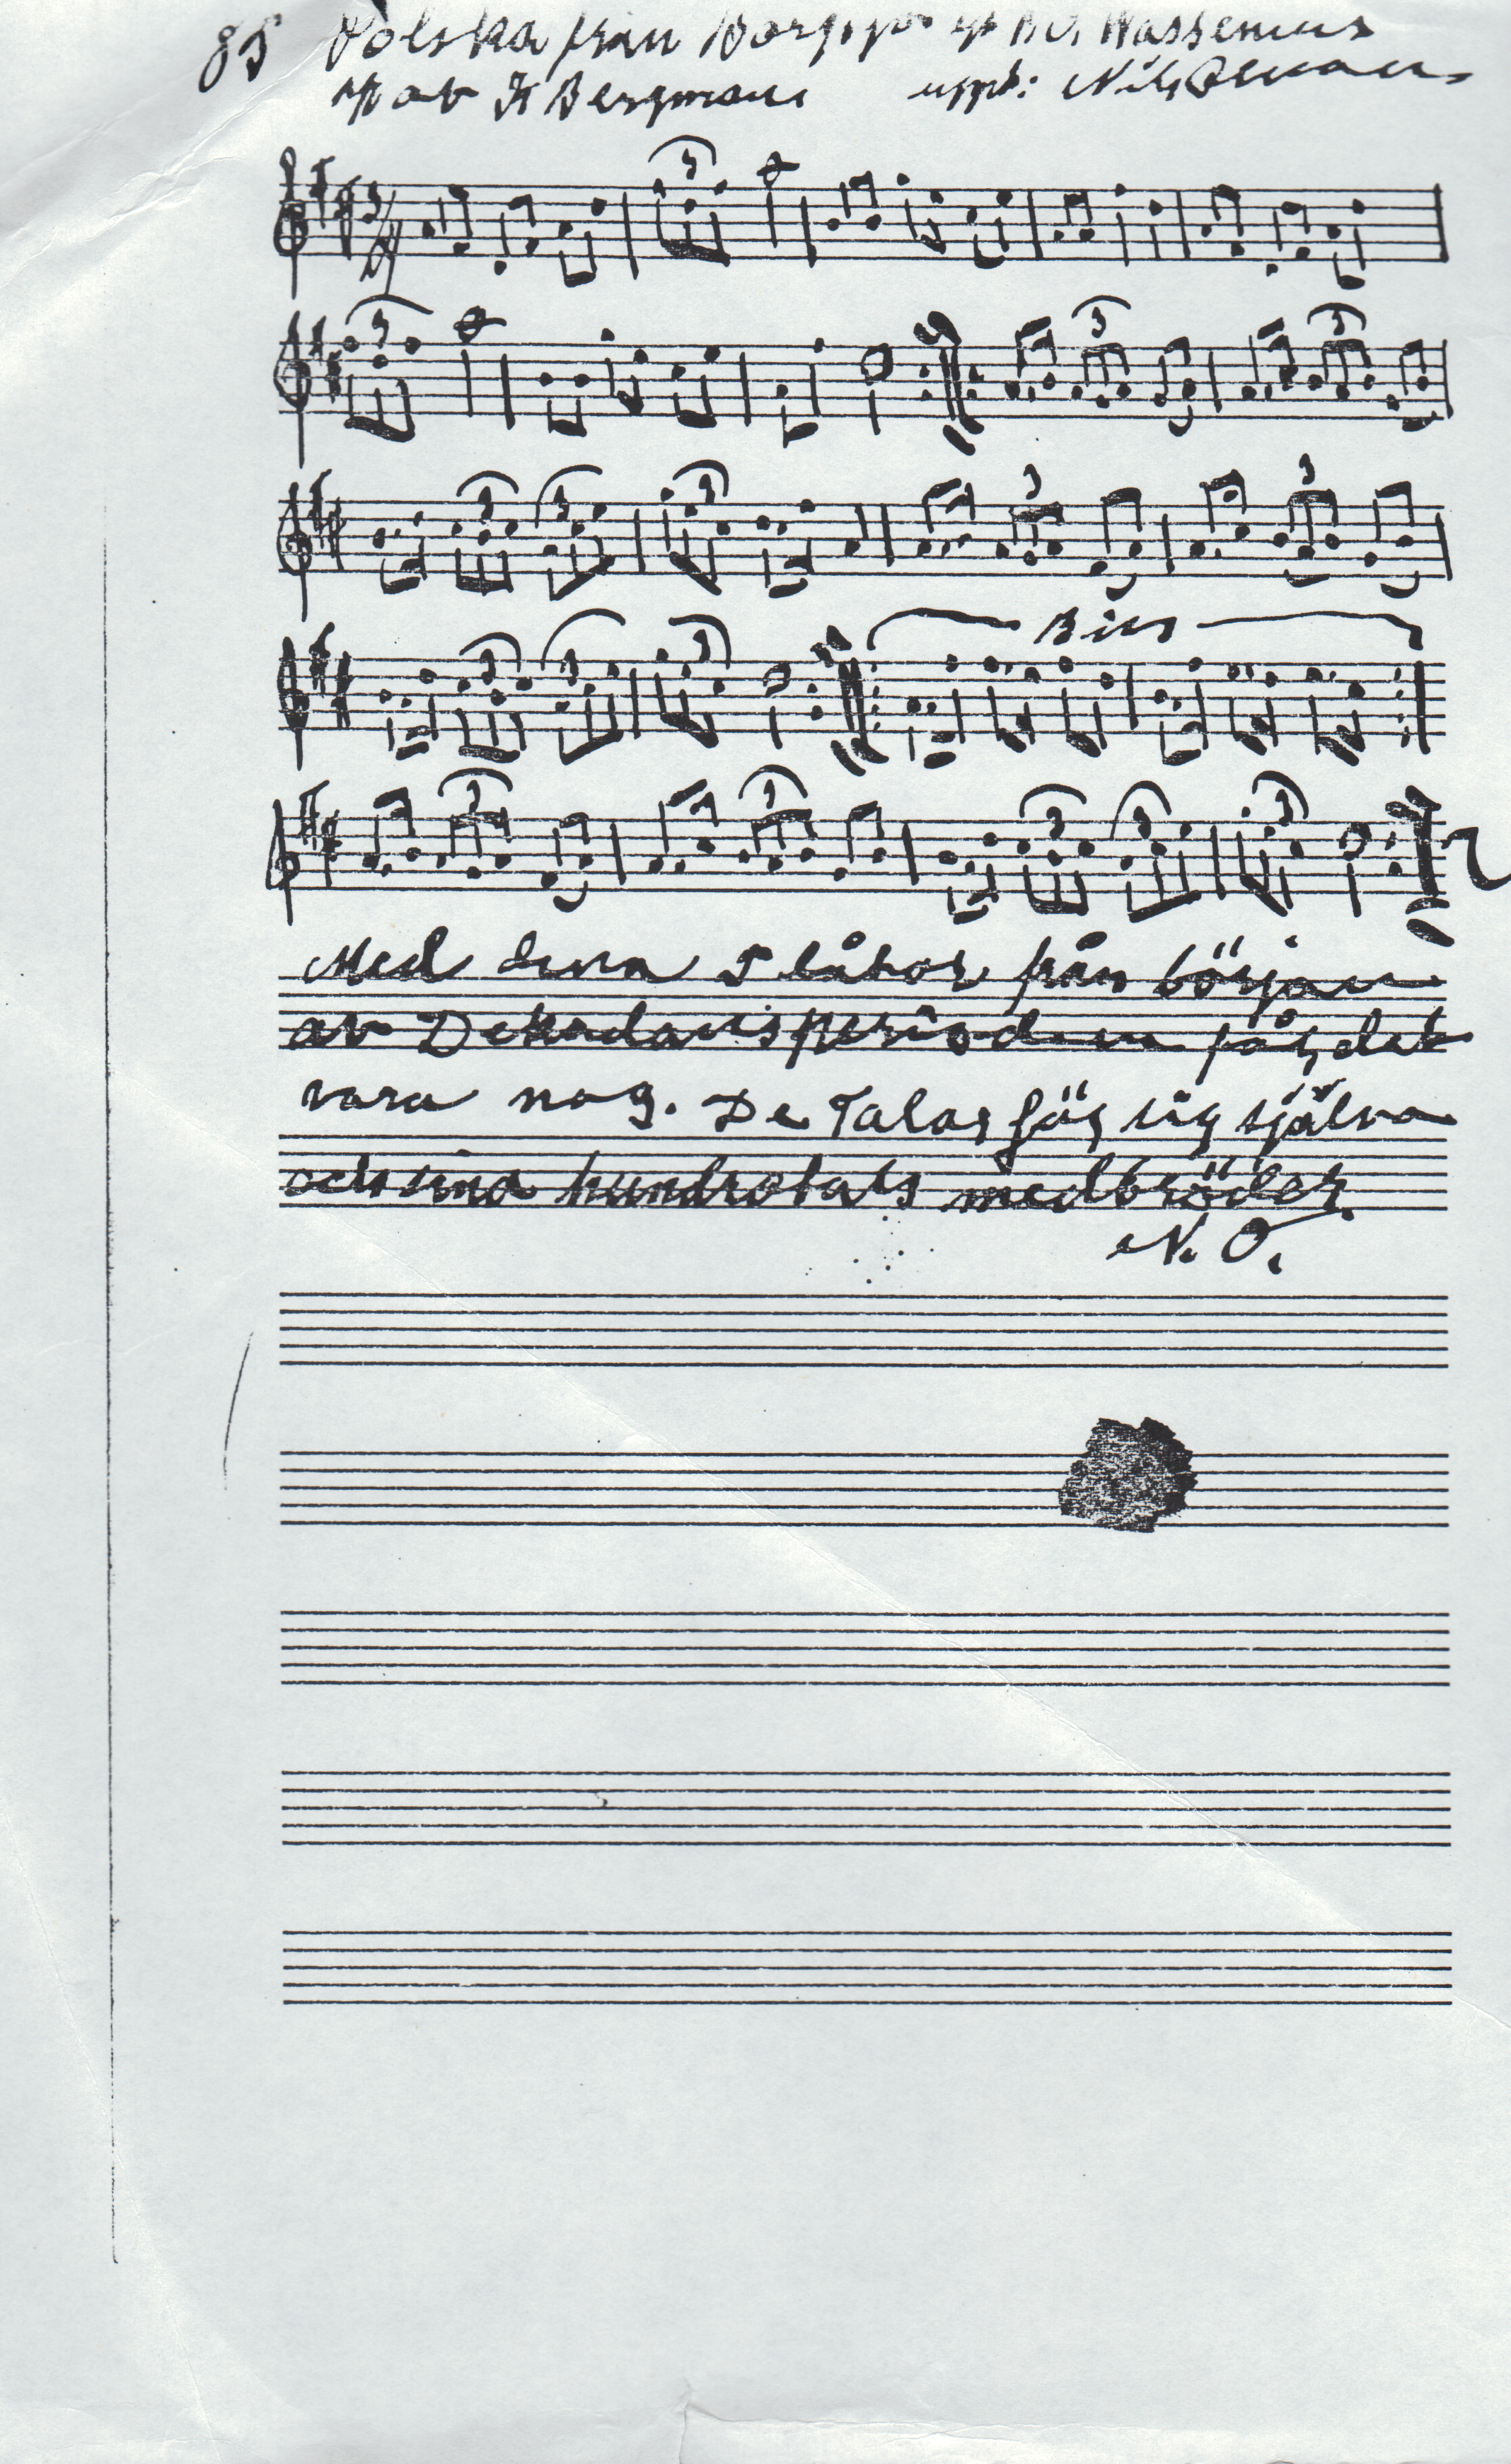 85 Polska från Wassenius
av K Bergman uppt: Nils
3
3
3 3
3 3 3 3 3
3 3 3 Bis
3 3 3 3 3
Med dessa 5 låtar från början
av Dekadansperioden får det
vara nog. De Talar för sig själva
och sina hundratals medbröder.
N. O.